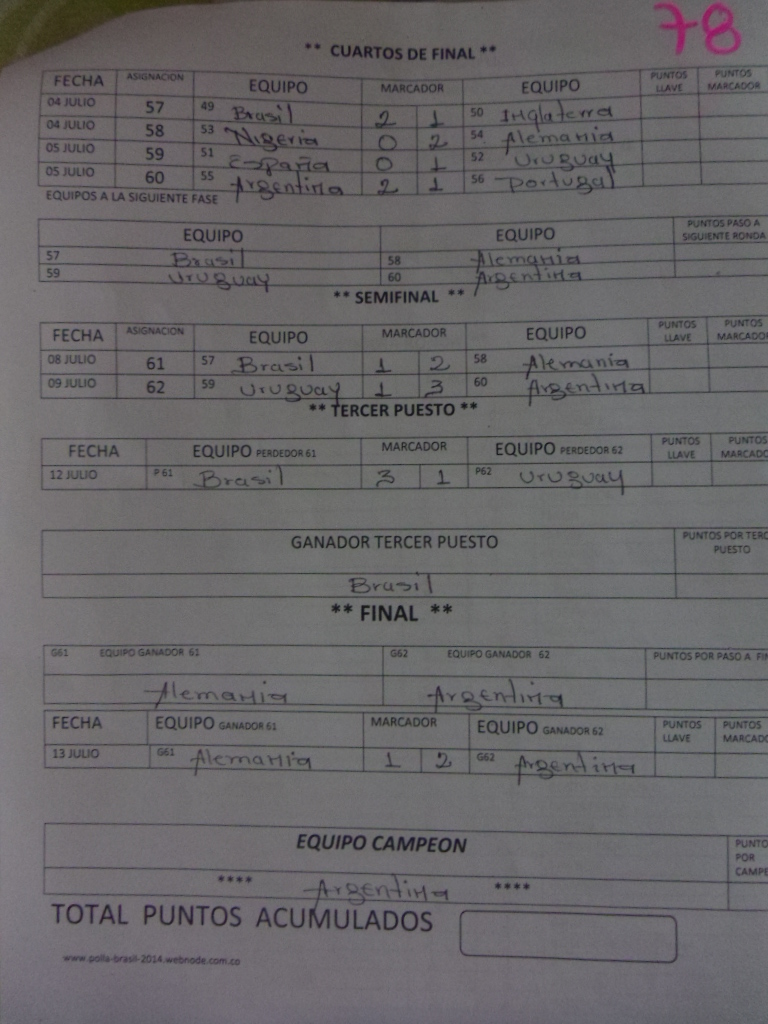 78
** CUARTOS DE FINAL **
FECHA ASIGNACION EQUIPO MARCADOR EQUIPO PUNTOS LLAVE PUNTOS MARCADOR
04 JULIO 57 49 Brasil 2 1 50 Inglaterra
04 JULIO 58 53 Nigeria 0 2 54 Alemania
05 JULIO 59 51 España 0 1 52 Uruguay
05 JULIO 60 55 Argentina 2 1 56 Portugal
EQUIPOS A LA SIGUIENTE FASE
EQUIPO EQUIPO PUNTOS PASO A SIGUIENTE RONDA
57 Brasil 58 Alemania
59 Uruguay 60 Argentina
** SEMIFINAL **
FECHA ASIGNACION EQUIPO MARCADOR EQUIPO PUNTOS LLAVE PUNTOS MARCADO
08 JULIO 61 57 Brasil 1 2 58 Alemania
09 JULIO 62 59 Uruguay 1 3 60 Argentina
** TERCER PUESTO **
FECHA EQUIPO PERDEDOR 61 MARCADOR EQUIPO PERDEDOR 62 PUNTOS LLAVE PUNTOS MARCADO
12 JULIO P 61 Brasil 3 1 P62 Uruguay
GANADOR TERCER PUESTO PUNTOS POR TERC PUESTO
Brasil
** FINAL **
G61 EQUIPO GANADOR 61 G62 EQUIPO GANADOR 62 PUNTOS POR PASO A FIN
Alemania Argentina
FECHA EQUIPO GANADOR 61 MARCADOR EQUIPO GANADOR 62 PUNTOS LLAVE PUNTOS MARCADO
13 JULIO G61 Alemania 1 2 G62 Argentina
EQUIPO CAMPEON PUNTO POR CAMPE
**** Argentina ****
TOTAL PUNTOS ACUMULADOS
www.polla-brasil-2014.webnode.com.co